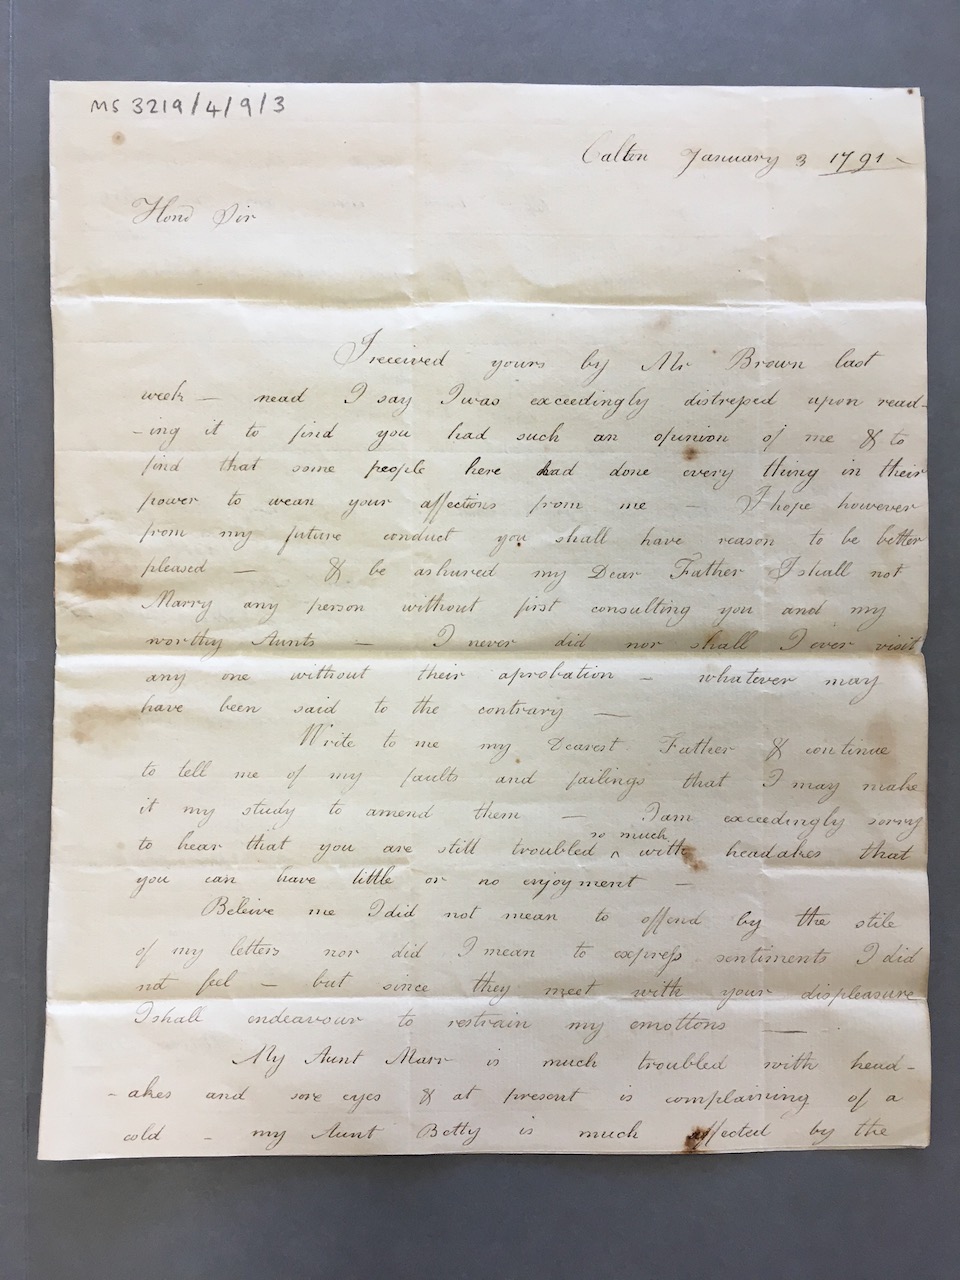 MS 3219/4/9/3
Calton January 3 1791 -
Hond Sir
I received yours by Mr Brown last
week — nead I say I was exceedingly distressed upon read-
-ing it to find you had such an opinion of me & to
find that some people here had done every thing in their
power to wean your affections from me — I hope however
from my future conduct you shall have reason to be better
pleased — & be ashured my Dear Father I shall not
Marry any person without first consulting you and my
worthy Aunts — I never did nor shall I ever visit
any one without their aprobation — whatever may
have been said to the contrary —
Write to me my Dearest Father & continue
to tell me of my faults and failings that I may make
it my study to amend them — I am exceedingly sorry
to hear that you are still troubled ^ so much with headakes that
you can have little or no enjoyment —
Beleive me I did not mean to offend by the stile
of my letters nor did I mean to express sentiments I did
not feel — but since they meet with your displeasure
I shall endeavour to restrain my emottons —
My Aunt Marr is much troubled with head-
-akes and sore eyes & at present is complaining of a
cold — my Aunt Betty is much affected by the